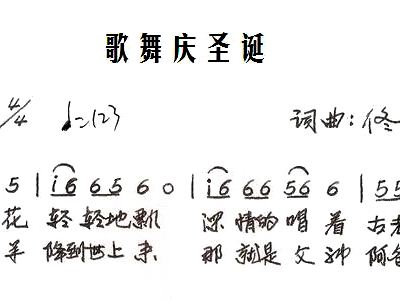 歌舞庆圣诞
4/4 ♩=123 词曲:佟
5 | i6 65 6 0 | i6 66 56 6 | 55
花 轻轻地飘 深情的唱着 古老
羊 降到世上来 那就是父神 阿爸